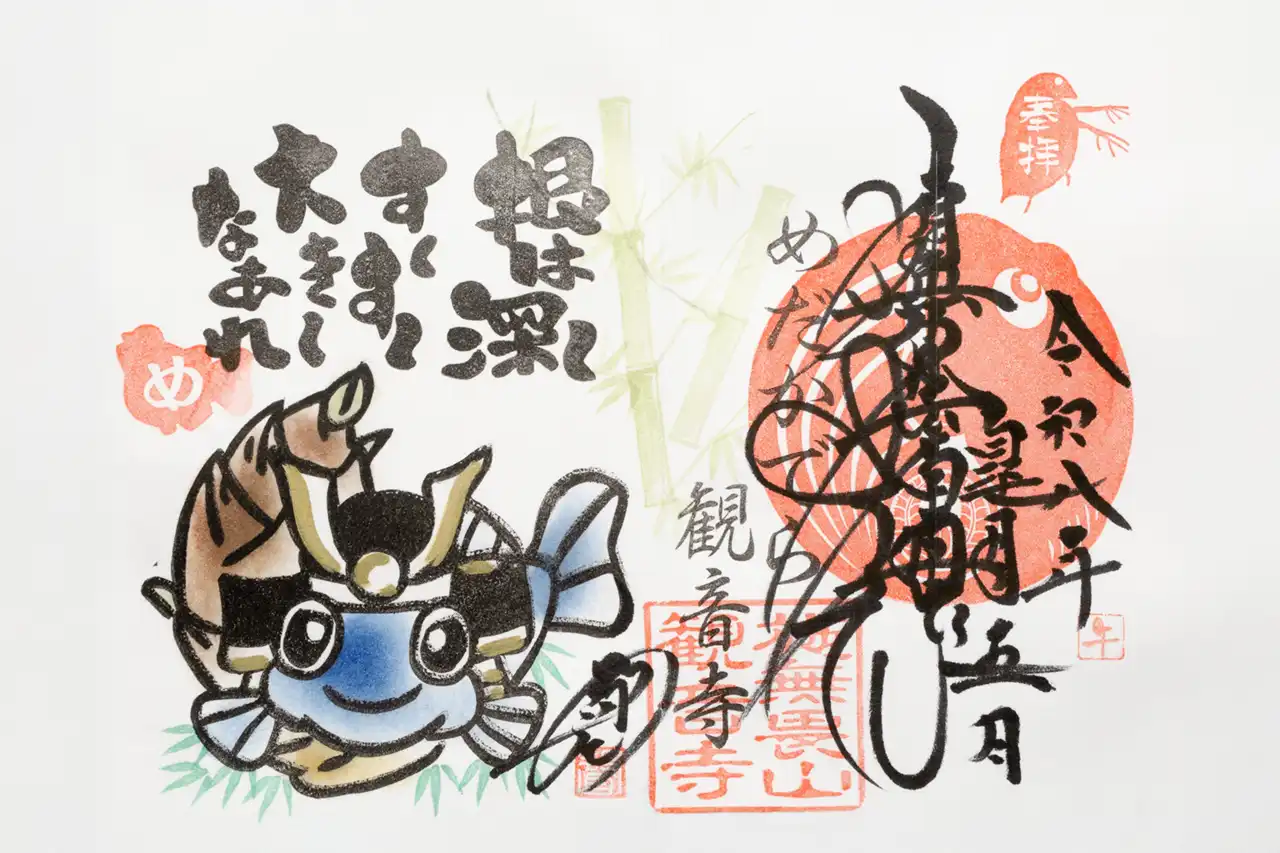 奉拝
令和八年
皐月
五月
午
めだかでら
観音寺
施無畏山
観音寺
根は深く
すくすく
大きく
なあれ
め